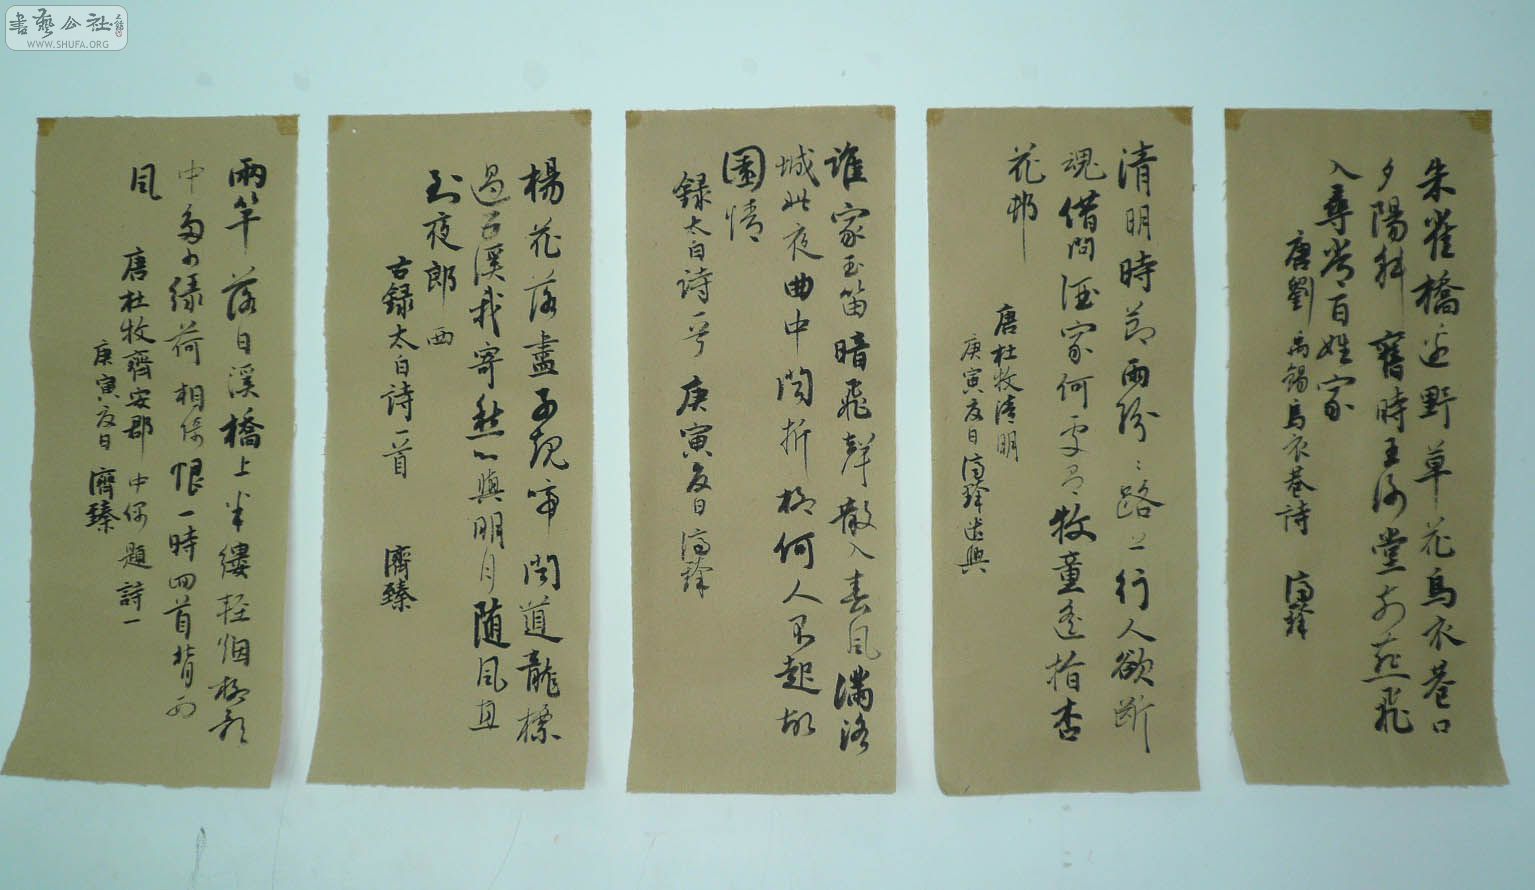 書藝公社
WWW.SHUFA.ORG
朱雀橋邊野草花烏衣巷口
夕陽斜舊時王謝堂前燕飛
入尋常百姓家
唐劉禹錫烏衣巷詩 濟臻
清明時節雨紛〻路上行人欲斷
魂借問酒家何處有牧童遙指杏
花邨
唐杜牧清明
庚寅夏日濟臻遣興
誰家玉笛暗飛聲散入春風滿洛
城此夜曲中聞折柳何人不起故
園情
録太白詩一首 庚寅夏日濟臻
楊花落盡子規啼聞道龍標
過五溪我寄愁心與明月随風直
到夜郎西
古録太白詩一首 濟臻
兩竿落日溪橋上半縷輕烟柳影
中多少绿荷相倚恨一時回首背西
風
唐杜牧齊安郡中偶題詩一
庚寅夏日 濟臻